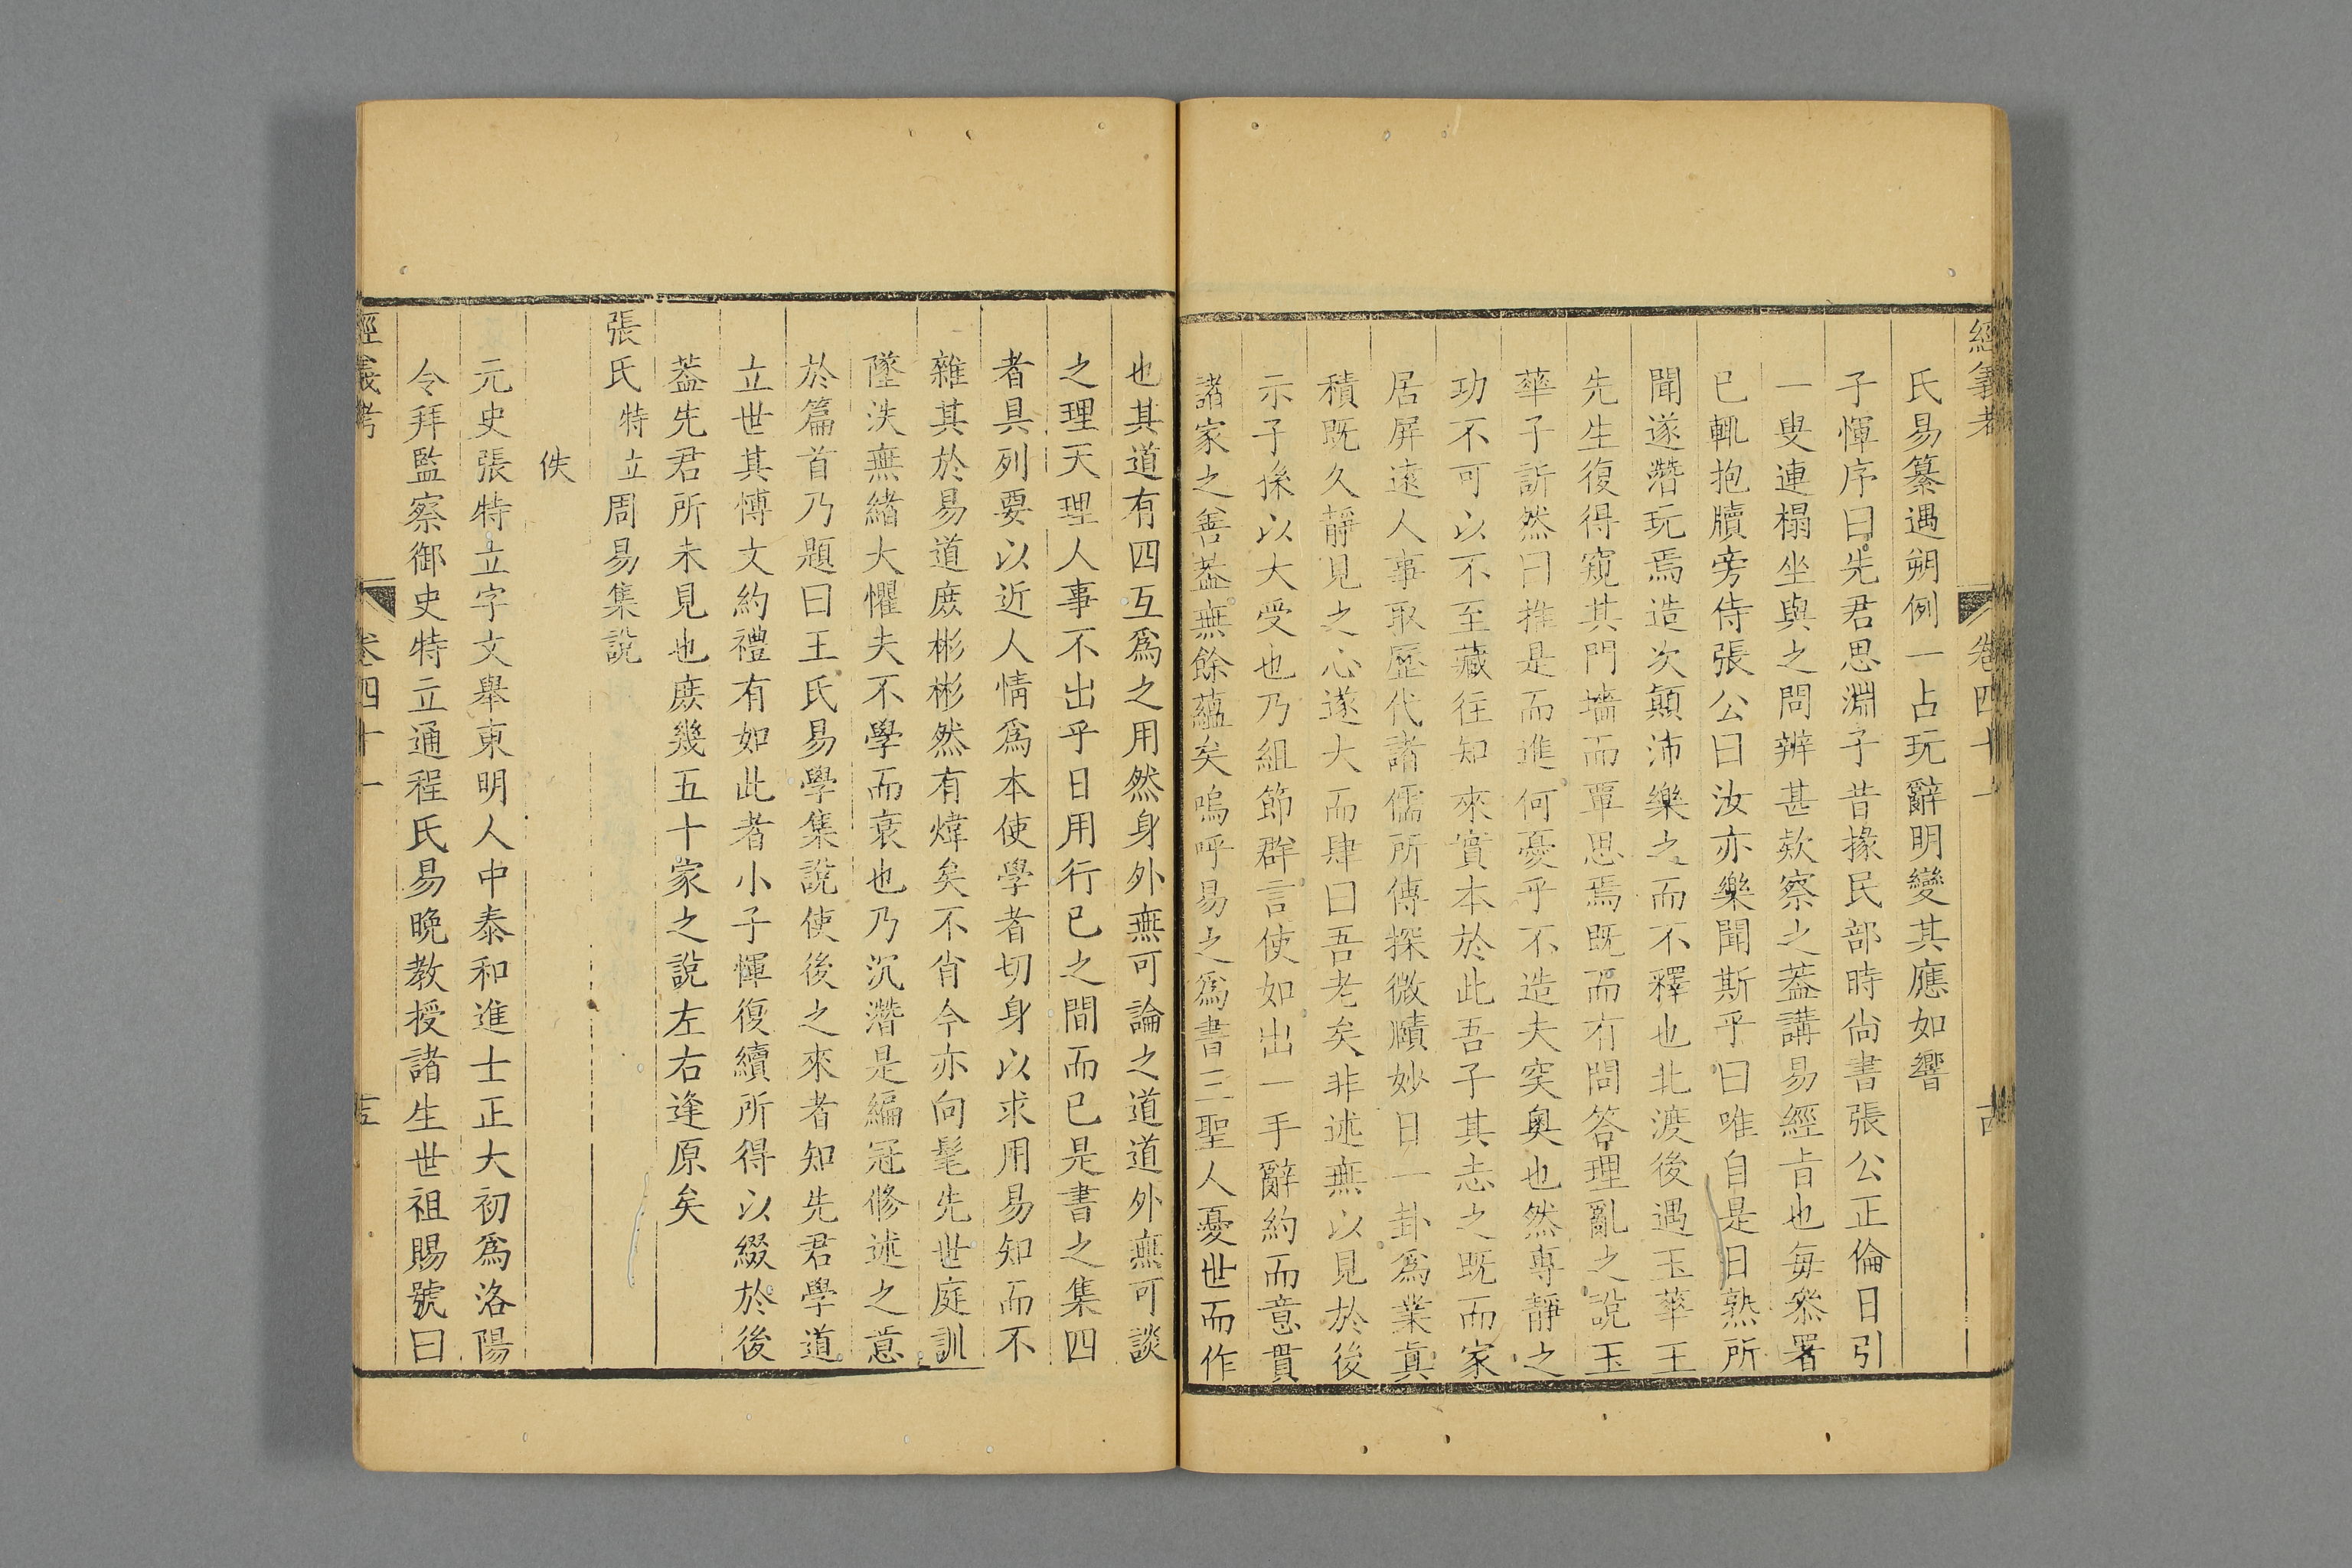 經義考 卷四十一 古
氏易纂遇朔例一占玩辭明變其應如響
子惲序曰先君思淵子昔掾民部時尙書張公正倫日引
一叟連榻坐與之問辨甚欵察之葢講易經㫖也每叅署
已輒抱牘旁侍張公曰汝亦樂聞斯乎曰唯自是日熟所
聞遂濳玩焉造次顛沛樂之而不釋也北渡後遇玉華王
先生復得窺其門墻而覃思焉既而有問答理亂之說玉
華子訢然曰推是而進何憂乎不造夫窔奧也然專靜之
功不可以不至藏往知來實本於此吾子其志之既而家
居屏遠人事取歷代諸儒所傳探微賾妙日一卦爲業真
積既久靜見之心遂大而肆曰吾老矣非述無以見於後
示子孫以大受也乃組節群言使如出一手辭約而意貫
諸家之善葢無餘蘊矣嗚呼易之爲書三聖人憂世而作
也其道有四互爲之用然身外無可論之道道外無可談
之理天理人事不出乎日用行已之間而已是書之集四
者具列要以近人情爲本使學者切身以求用易知而不
雜其於易道庶彬彬然有煒矣不肖今亦向髦先世庭訓
墜泆無緒大懼夫不學而衰也乃沉濳是編冠脩述之意
於篇首乃題曰王氏易學集說使後之來者知先君學道
立世其博文約禮有如此者小子惲復續所得以綴於後
葢先君所未見也庶幾五十家之說左右逢原矣
張氏特立周易集說
佚
元史張特立字文舉東明人中泰和進士正大初爲洛陽
令拜監察御史特立通程氏易晚教授諸生世祖賜號曰
經義考 卷四十一